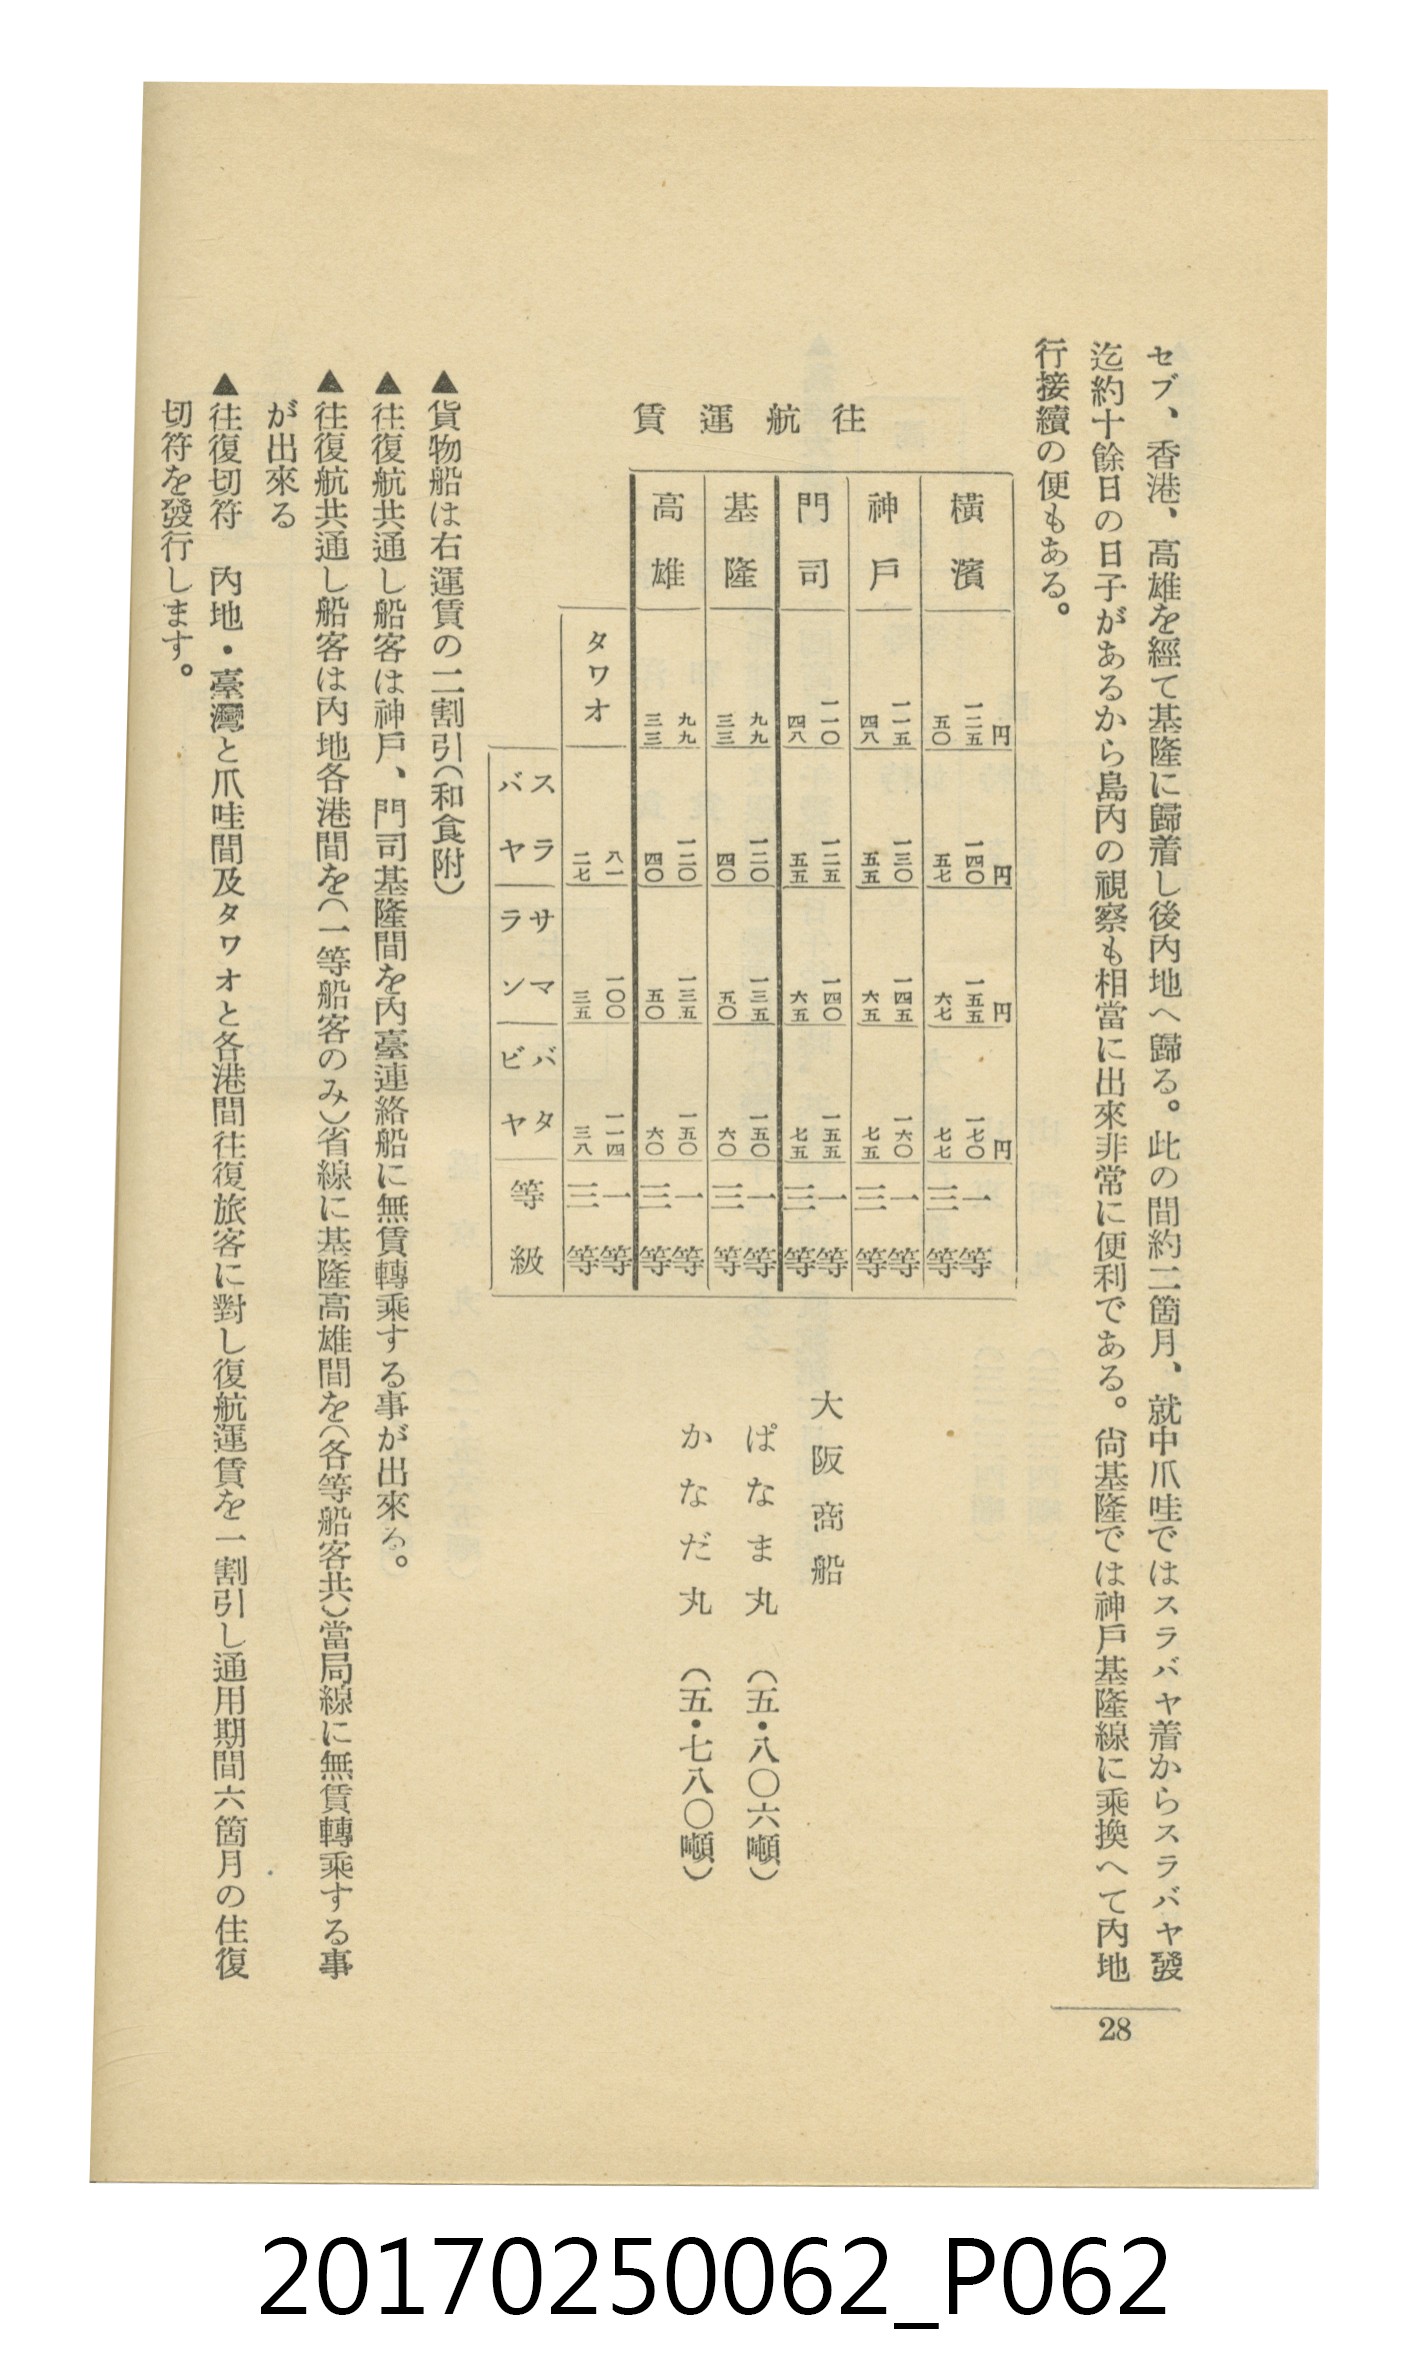 セブ、香港、高雄を經て基隆に歸着し後內地へ歸る。此の間約二箇月、就中爪哇ではスラバヤ着からスラバヤ發
迄約十餘日の日子があるから島內の視察も相當に出來非常に便利である。尙基隆では神戶基隆線に乘換へて內地
行接續の便もある。
往航運賃
橫濱 一二五円 一四〇円 一五五円 一七〇円 一等
五〇 五七 六七 七七 三等
神戶 一一五 一三〇 一四五 一六〇 一等
四八 五五 六五 七五 三等
門司 一一〇 一二五 一四〇 一五五 一等
四八 五五 六五 七五 三等
基隆 九九 一二〇 一三五 一五〇 一等
三三 四〇 五〇 六〇 三等
高雄 九九 一二〇 一三五 一五〇 一等
三三 四〇 五〇 六〇 三等
タワオ 八一 一〇〇 一一四 一等
二七 三五 三八 三等
スラバヤ サマラン バタビヤ 等級
大阪商船
ぱなま丸 (五・八〇六噸)
かなだ丸 (五・七八〇噸)
▲貨物船は右運賃の二割引(和食附)
▲往復航共通し船客は神戶、門司基隆間を內臺連絡船に無賃轉乘する事が出來る。
▲往復航共通し船客は內地各港間を(一等船客のみ)省線に基隆高雄間を(各等船客共)當局線に無賃轉乘する事
が出來る
▲往復切符 內地・臺灣と爪哇間及タワオと各港間往復旅客に對し復航運賃を一割引し通用期間六箇月の住復
切符を發行します。
28
20170250062_P062